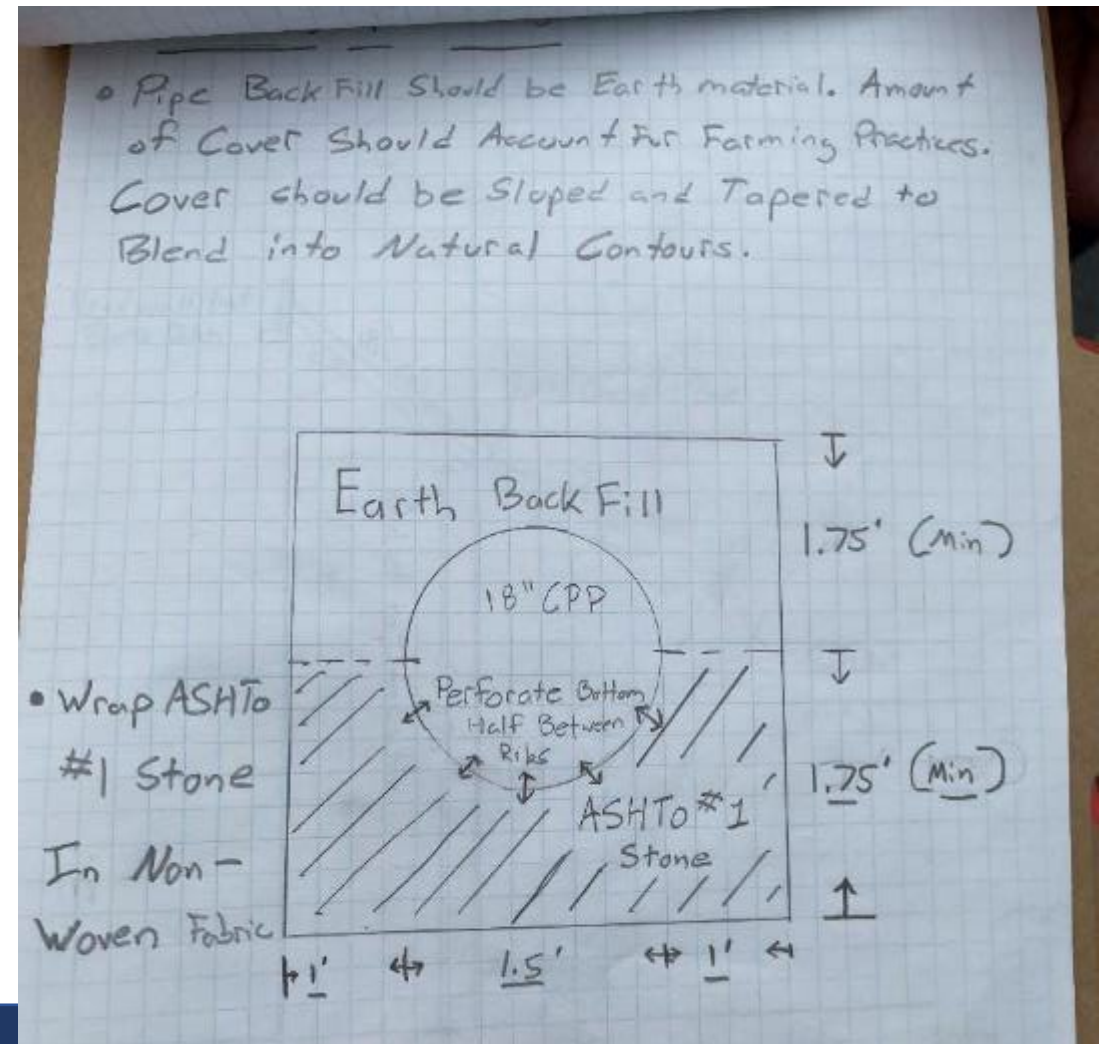 • Pipe Back Fill Should be Earth material. Amount
of Cover Should Account For Farming Practices.
Cover should be Sloped and Tapered to
Blend into Natural Contours.
Earth Back Fill
1.75' (Min)
18" CPP
Perforate Bottom
Half Between
Ribs
• Wrap ASHTo
#1 Stone
In Non-
Woven Fabric
ASHTo #1
Stone
1.75' (Min)
1'
1.5'
1'